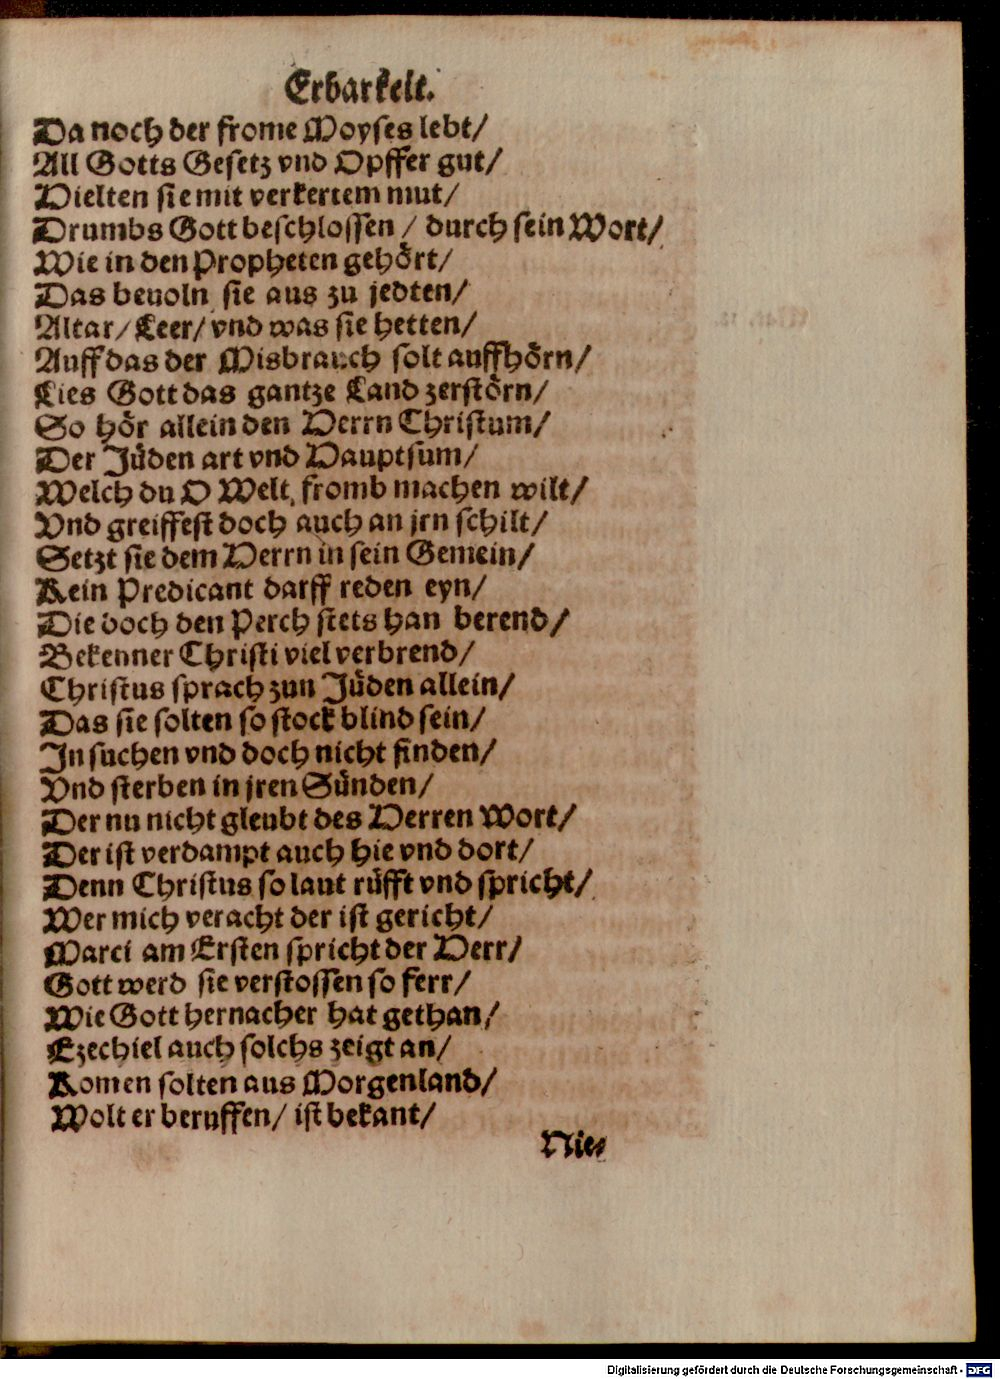 Erbarkeit.
Da noch der frome Moyses lebt/
All Gotts Gesetz vnd Opffer gut/
Hielten sie mit verkertem mut/
Drumbs Gott beschlossen / durch sein Wort/
Wie in den Propheten gehört/
Das beuoln sie aus zu jedten/
Altar/ Leer/ vnd was sie hetten/
Auff das der Misbrauch solt auffhörn/
Lies Gott das gantze Land zerstörn/
So hör allein den Herrn Christum/
Der Jüden art vnd Hauptsum/
Welch du O Welt, fromb machen wilt/
Vnd greiffest doch auch an jrn schilt/
Setzt sie dem Herrn in sein Gemein/
Kein Predicant darff reden eyn/
Die doch den Perch stets han berend/
Bekenner Christi viel verbrend/
Christus sprach zun Jüden allein/
Das sie solten so stock blind sein/
In suchen vnd doch nicht finden/
Vnd sterben in jren Sünden/
Der nu nicht gleubt des Herren Wort/
Der ist verdampt auch hie vnd dort/
Denn Christus so laut rüfft vnd spricht/
Wer mich veracht der ist gericht/
Marci am Ersten spricht der Herr/
Gott werd sie verstossen so ferr/
Wie Gott hernacher hat gethan/
Ezechiel auch solchs zeigt an/
Komen solten aus Morgenland/
Wolt er beruffen/ ist bekant/
Nie⸗
Digitalisierung gefördert durch die Deutsche Forschungsgemeinschaft - DFG